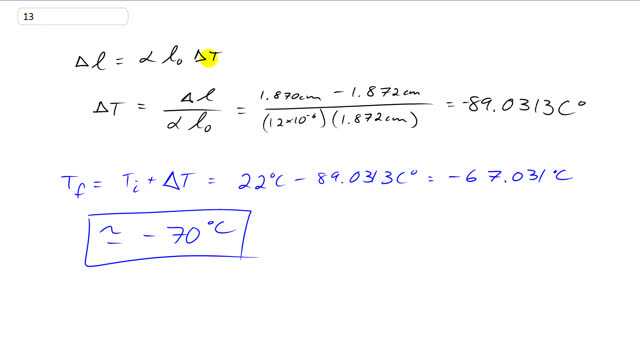 13
Δl = α l₀ ΔT
ΔT = Δl / α l₀ = 1.870cm - 1.872cm / (12×10⁻⁶)(1.872cm) = -89.0313C°
T_f = T_i + ΔT = 22°C - 89.0313C° = -67.031°C
≃ -70°C